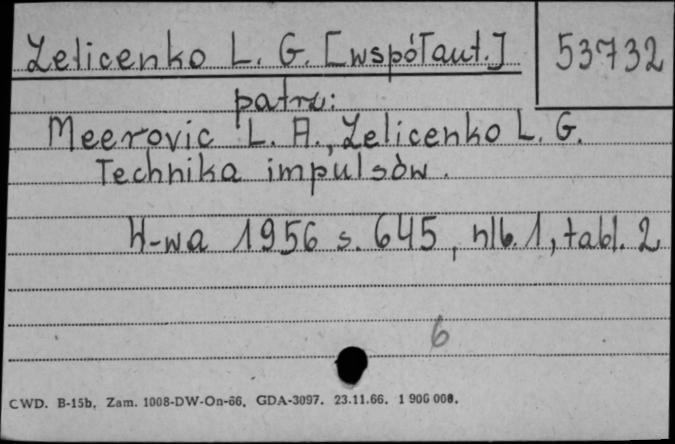 Zelicenko L. G. [współaut.]
53732
patrz:
Meerovic L. A., Zelicenko L. G.
Technika impulsów.
W-wa 1956 s. 645, nlb. 1, tabl. 2
6
CWD. B-15b. Zam. 1008-DW-On-66. GDA-3097. 23.11.66. 1 900 000.